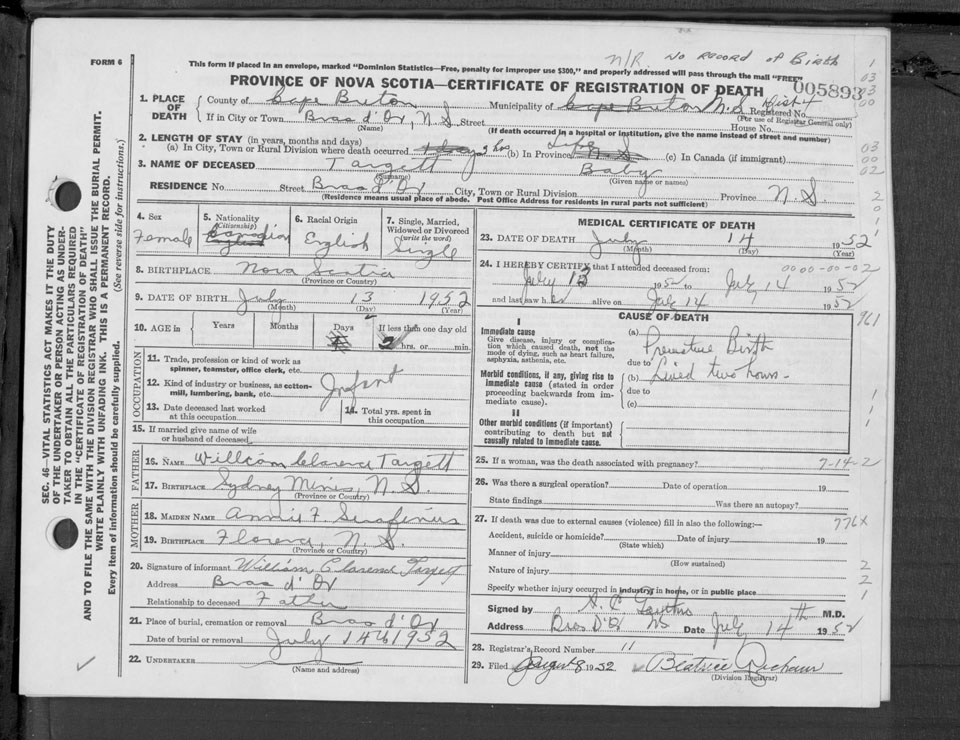 N/R. No Record of Birth
FORM 6
This form if placed in an envelope, marked "Dominion Statistics—Free, penalty for improper use $300," and properly addressed will pass through the mail "FREE"
PROVINCE OF NOVA SCOTIA—CERTIFICATE OF REGISTRATION OF DEATH
005893
1. PLACE OF DEATH
County of Cape Breton Municipality of Cape Breton N.S Dist 4 Registered No.
(For use of Registrar General only)
If in City or Town Bras d'Or, N.S Street House No.
(Name) (If death occurred in a hospital or institution, give the name instead of street and number)
2. LENGTH OF STAY (in years, months and days)
(a) In City, Town or Rural Division where death occurred 2 hos (b) In Province Life (c) In Canada (if immigrant)
3. NAME OF DECEASED Targett Baby
(Surname) (Given name or names)
RESIDENCE No. Street Bras d'Or City, Town or Rural Division Province N.S
(Residence means usual place of abode. Post Office Address for residents in rural parts not sufficient)
4. Sex
Female
5. Nationality
(Citizenship)
Canadian
English
6. Racial Origin
English
7. Single, Married, Widowed or Divorced
(write the word)
Single
8. BIRTHPLACE Nova Scotia
(Province or Country)
9. DATE OF BIRTH July 13 1952
(Month) (Day) (Year)
10. AGE in Years Months Days If less than one day old
2 hrs. or min.
OCCUPATION
11. Trade, profession or kind of work as
spinner, teamster, office clerk, etc.
12. Kind of industry or business, as cotton-
mill, lumbering, bank, etc.
Infant
13. Date deceased last worked
at this occupation
14. Total yrs. spent in
this occupation
15. If married give name of wife
or husband of deceased
FATHER
16. NAME William Clarence Targett
17. BIRTHPLACE Sydney Mines, N.S.
(Province or Country)
MOTHER
18. MAIDEN NAME Annie F. Serafinus
19. BIRTHPLACE Florence, N.S.
(Province or Country)
20. Signature of informant William Clarence Targett
Address Bras d'Or
Relationship to deceased Father
21. Place of burial, cremation or removal Bras d'Or
Date of burial or removal July 14th 1952
22. UNDERTAKER
(Name and address)
MEDICAL CERTIFICATE OF DEATH
23. DATE OF DEATH July 14 1952
(Month) (Day) (Year)
24. I HEREBY CERTIFY that I attended deceased from: 0000-00-02
July 13 1952 to July 14 1952
and last saw her alive on July 14 1952
CAUSE OF DEATH
961
I
Immediate cause
Give disease, injury or complica-
tion which caused death, not the
mode of dying, such as heart failure,
asphyxia, asthenia, etc.
(a) Premature Birth
due to
Morbid conditions, if any, giving rise to
immediate cause (stated in order
proceeding backwards from im-
mediate cause).
(b) Lived two hours-
due to
(c)
II
Other morbid conditions (if important)
contributing to death but not
causally related to immediate cause.
25. If a woman, was the death associated with pregnancy? 7-14-2
26. Was there a surgical operation? Date of operation 19
State findings Was there an autopsy?
27. If death was due to external causes (violence) fill in also the following:— 776X
Accident, suicide or homicide? Date of injury 19
(State which)
Manner of injury
(How sustained)
Nature of injury
Specify whether injury occurred in industry, in home, or in public place
Signed by M.D.
Address Bras D'Or NS Date July 14th 1952
28. Registrar's Record Number 11
29. Filed August 8 1952 Beatrice
(Division Registrar)
SEC. 46—VITAL STATISTICS ACT MAKES IT THE DUTY
OF THE UNDERTAKER OR PERSON ACTING AS UNDER-
TAKER TO OBTAIN ALL THE PARTICULARS REQUIRED
IN THE "CERTIFICATE OF REGISTRATION OF DEATH"
AND TO FILE THE SAME WITH THE DIVISION REGISTRAR WHO SHALL ISSUE THE BURIAL PERMIT.
WRITE PLAINLY WITH UNFADING INK. THIS IS A PERMANENT RECORD.
Every item of information should be carefully supplied. (See reverse side for instructions.)
1
03
03
00
03
00
02
2
0
1
1
1
1
1
2
2
1